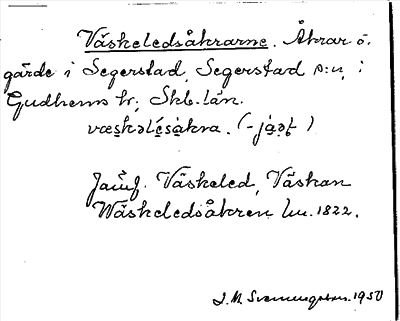 Väskeledsåkrarne. Åkrar o.
gärde i Segerstad, Segerstad s:n, i
Gudhems hr, Skb. län.
væskəlésåkra.
Jämf. Väskeled, Väskan
Wäskeledsåkren hu. 1822.
J. M. Svenungsson. 1950